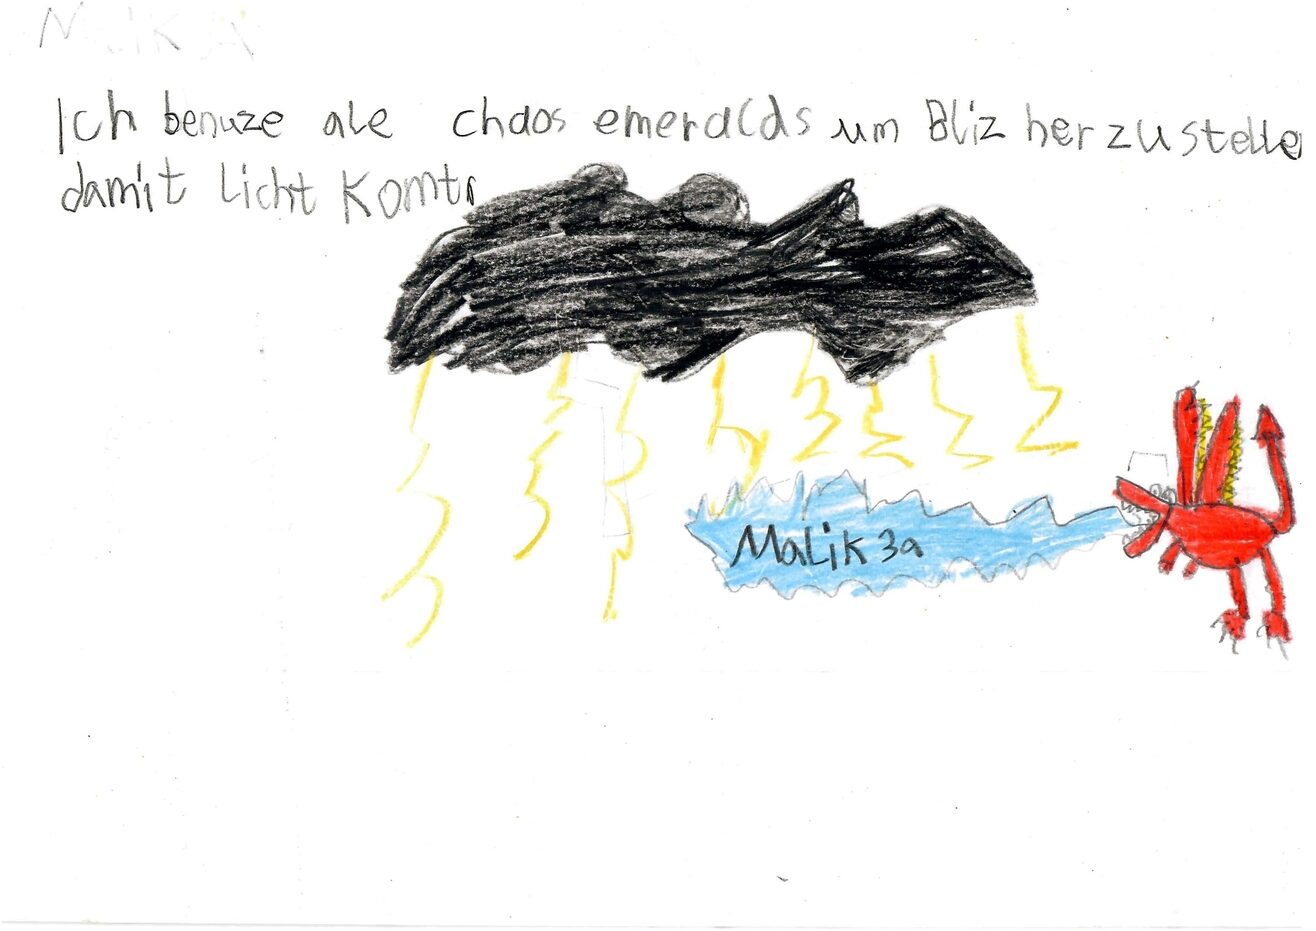 Malik
Ich benuze ale chaos emeralds um Bliz herzustelle
damit licht komt.
Malik 3a